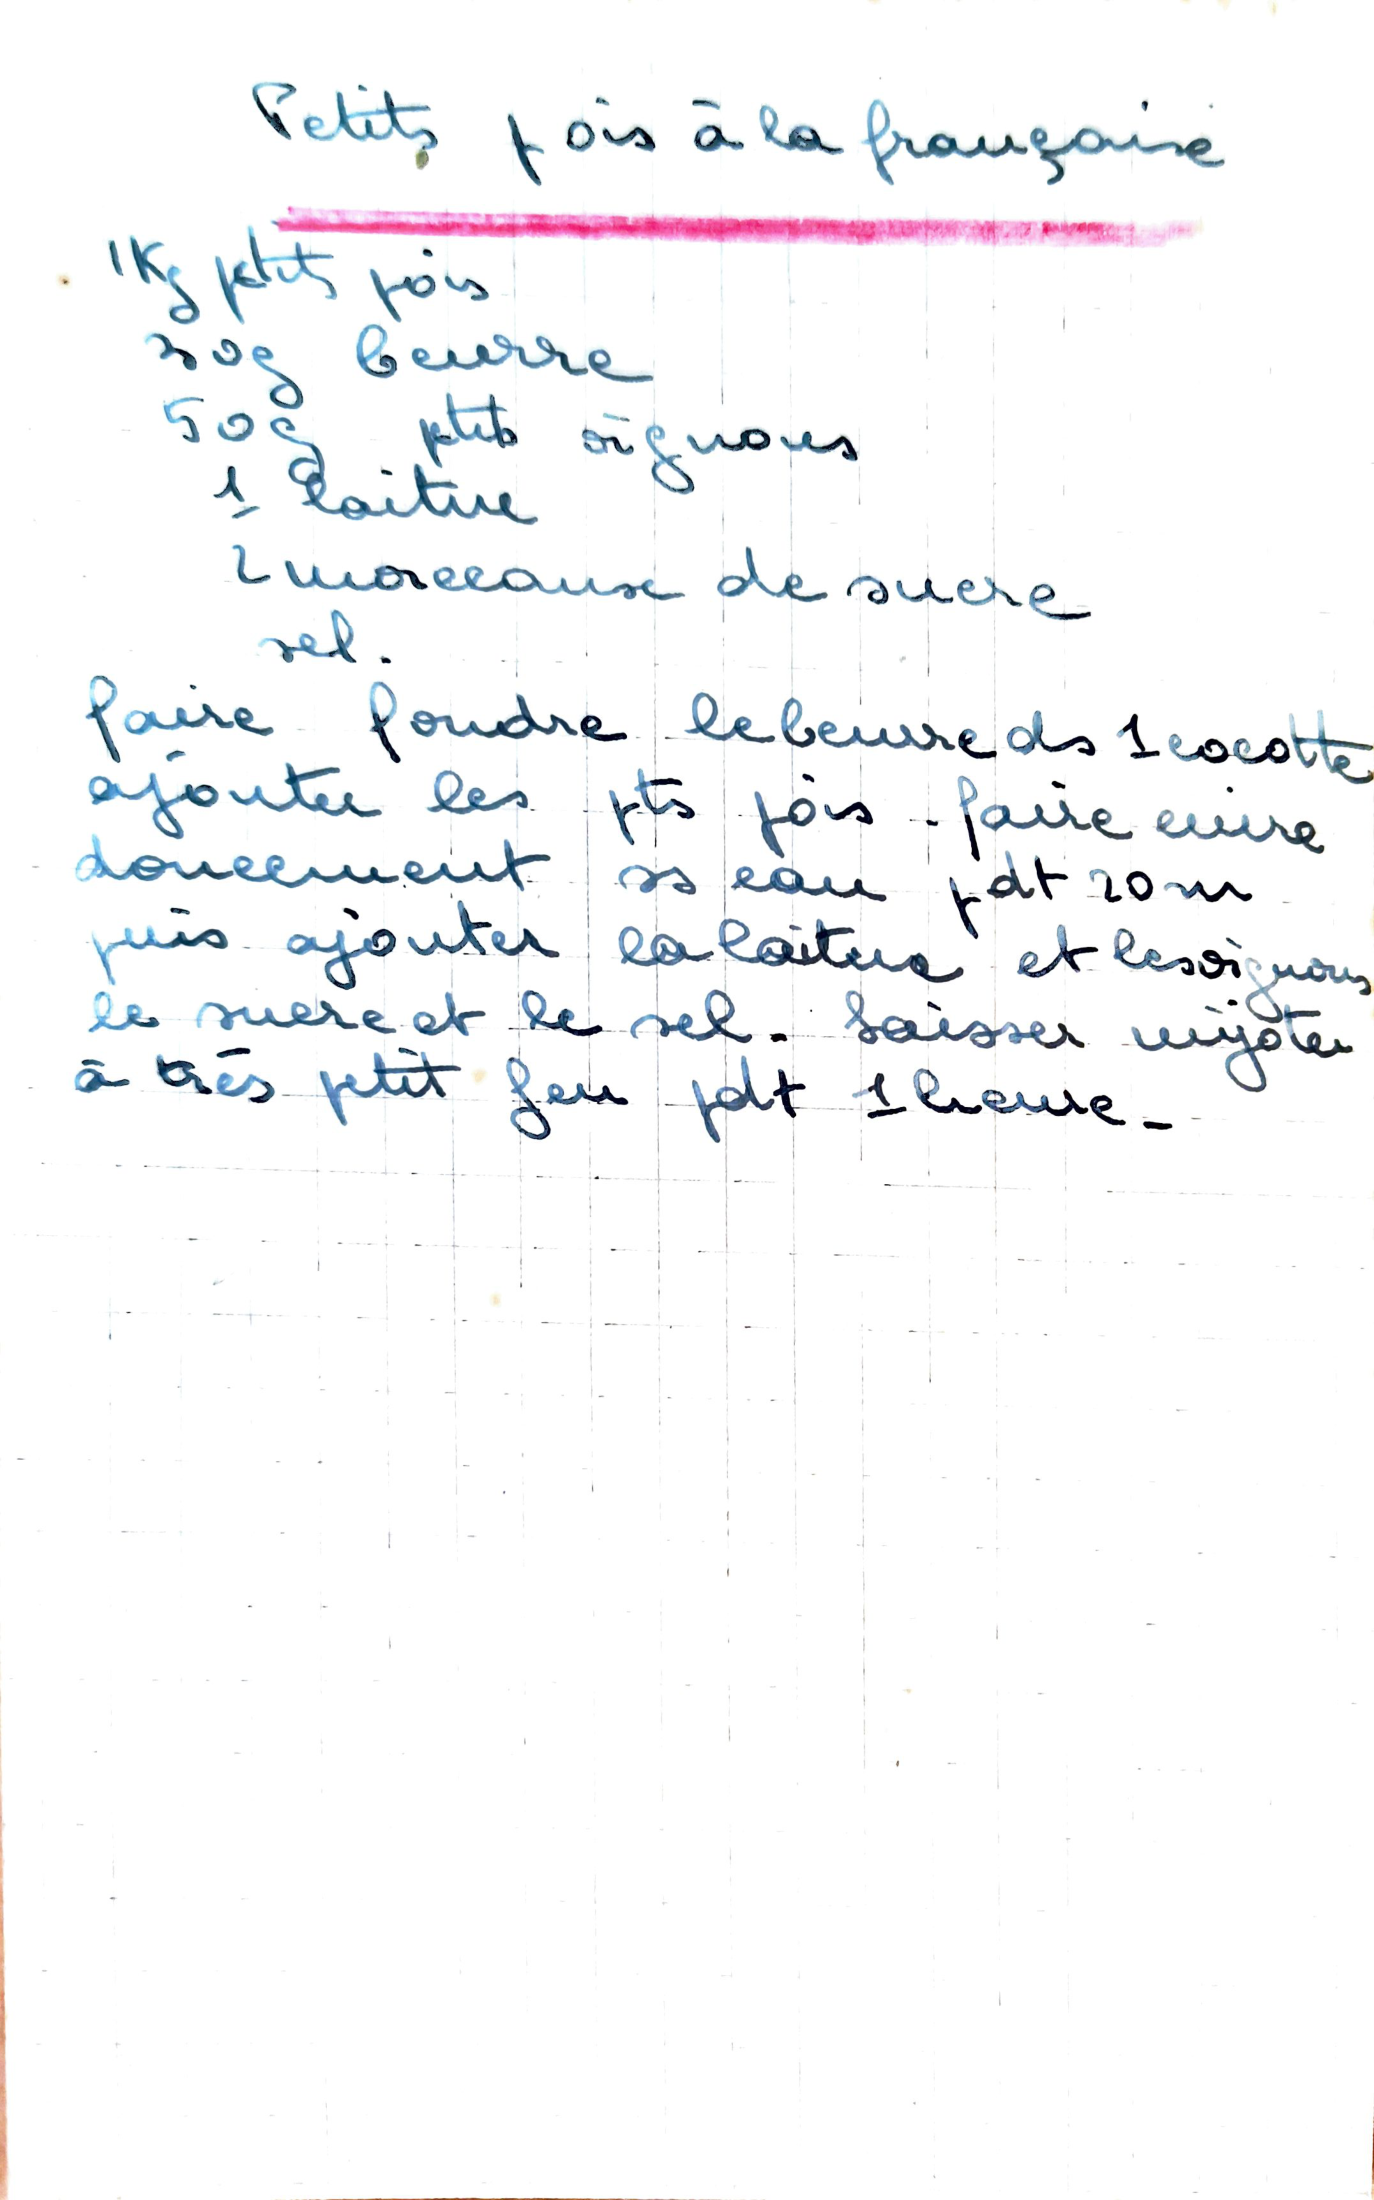 Petits pois à la française
1Kg petits pois
30g beurre
50g ptits oignons
1 laitue
2 morceaux de sucre
sel.
faire fondre le beurre ds 1 cocotte
ajouter les pts pois - faire cuire
doucement ss eau pdt 20 m
puis ajouter la laitue et les oignons
le sucre et le sel. Laisser mijoter
à très petit feu pdt 1 heure -